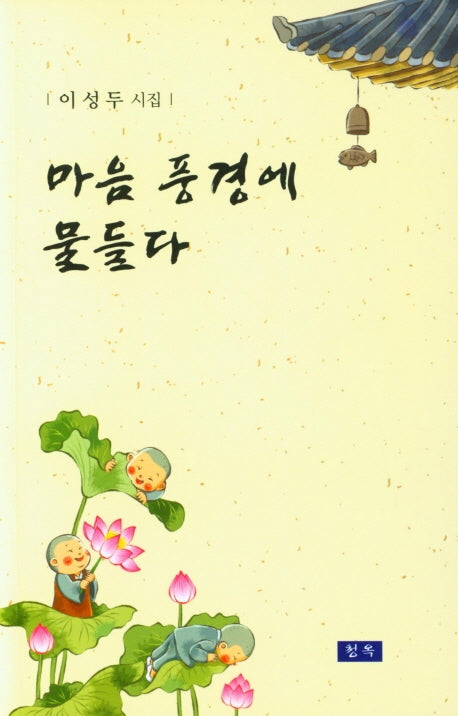 | 이성두 시집 |
마음 풍경에
물들다
청옥